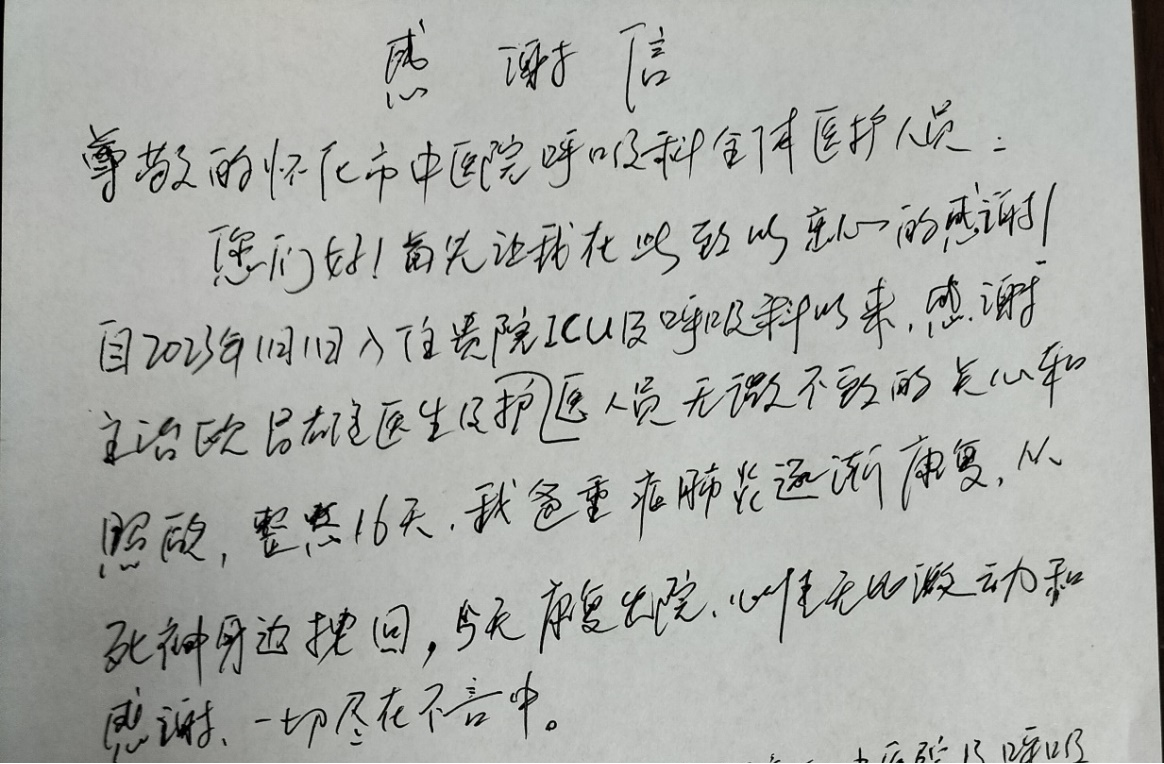 感谢信
尊敬的怀化市中医院呼吸科全体医护人员：
您们好！首先让我在此致以衷心的感谢！
自2023年11月11日入住贵院ICU及呼吸科以来，感谢
主治欧吕雄医生及护医人员无微不致的关心和
照顾，整整16天，我爸重症肺炎逐渐康复，从
死神身边拽回，今天康复出院、心情无比激动和
感谢、一切尽在不言中。
中医院及呼吸